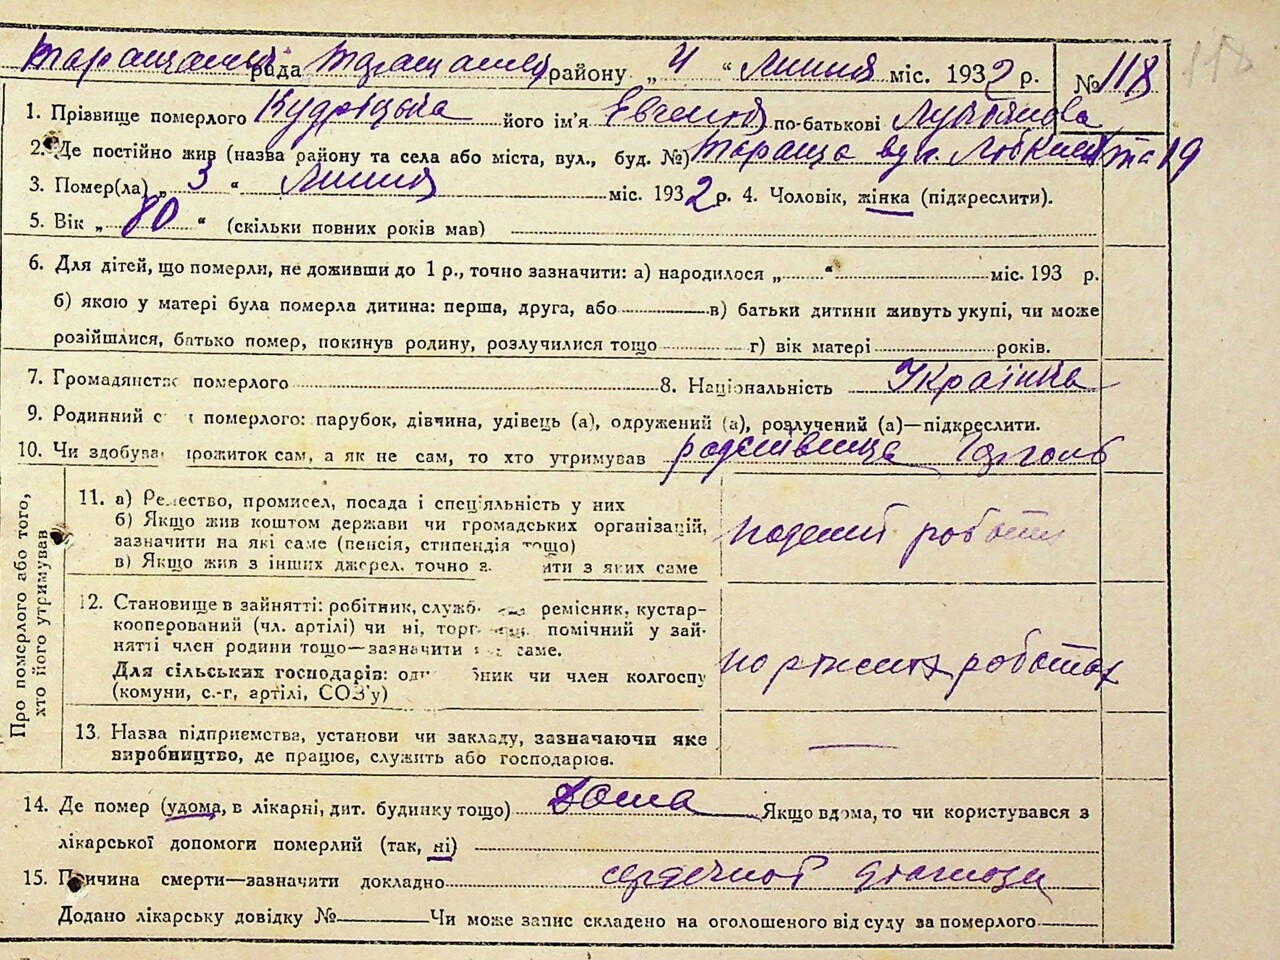 Таращанська рада Таращанськ району „ 4 “ Липня міс. 1932 р. № 118
118
1. Прізвище померлого Кудріцька його ім'я Евгенія по-батькові Лукіянова
2. Де постійно жив (назва району та села або міста, вул., буд. №) Тараща вул. 19
3. Помер(ла) „ 3 “ Липня міс. 1932 р. 4. Чоловік, жінка (підкреслити).
5. Вік „ 80 “ (скільки повних років мав)
6. Для дітей, що померли, не доживши до 1 р., точно зазначити: а) народилося „ “ міс. 193 р.
б) якою у матері була померла дитина: перша, друга, або в) батьки дитини живуть укупі, чи може
розійшлися, батько помер, покинув родину, розлучилися тощо г) вік матері років.
7. Громадянство померлого 8. Національність Українка
9. Родинний с н померлого: парубок, дівчина, удівець (а), одружений (а), розлучений (а)—підкреслити.
10. Чи здобува прожиток сам, а як не сам, то хто утримував
Про померлого або того,
хто його утримував
11. а) Ремество, промисел, посада і спеціяльність у них
б) Якщо жив коштом держави чи громадських організацій,
зазначити на які саме (пенсія, стипендія тощо)
в) Якщо жив з інших джерел, точно з ити з яких саме
роботи
12. Становище в зайнятті: робітник, служб ремісник, кустар-
кооперований (чл. артілі) чи ні, торг помічний у зай-
нятті член родини тощо—зазначити саме.
Для сільських господарів: од бник чи член колгоспу
(комуни, с.-г, артілі, СОЗ'у)
по ріжних роботах
13. Назва підприємства, установи чи закладу, зазначаючи яке
виробництво, де працює, служить або господарює.
14. Де помер (удома, в лікарні, дит. будинку тощо) дома Якщо вдома, то чи користувався з
лікарської допомоги померлий (так, ні)
15. Причина смерти—зазначити докладно
Додано лікарську довідку № Чи може запис складено на оголошеного від суду за померлого